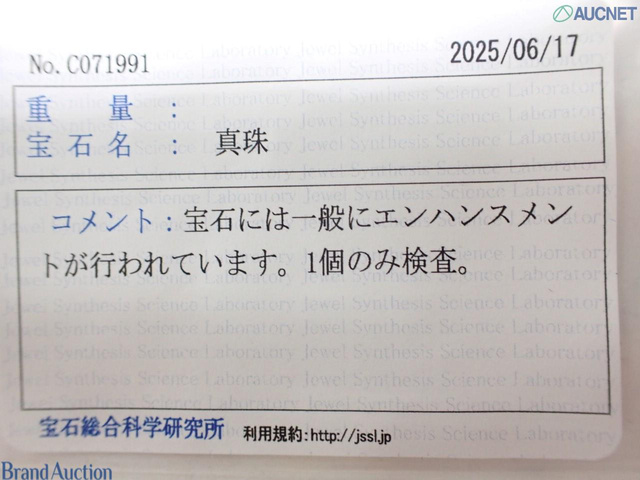 AUCNET
No.C071991
2025/06/17
重量：
宝石名：真珠
コメント：宝石には一般にエンハンスメン
トが行われています。1個のみ検査。
Jewel Synthesis Science Laboratory
宝石総合科学研究所 利用規約:http://jssl.jp
Brand Auction